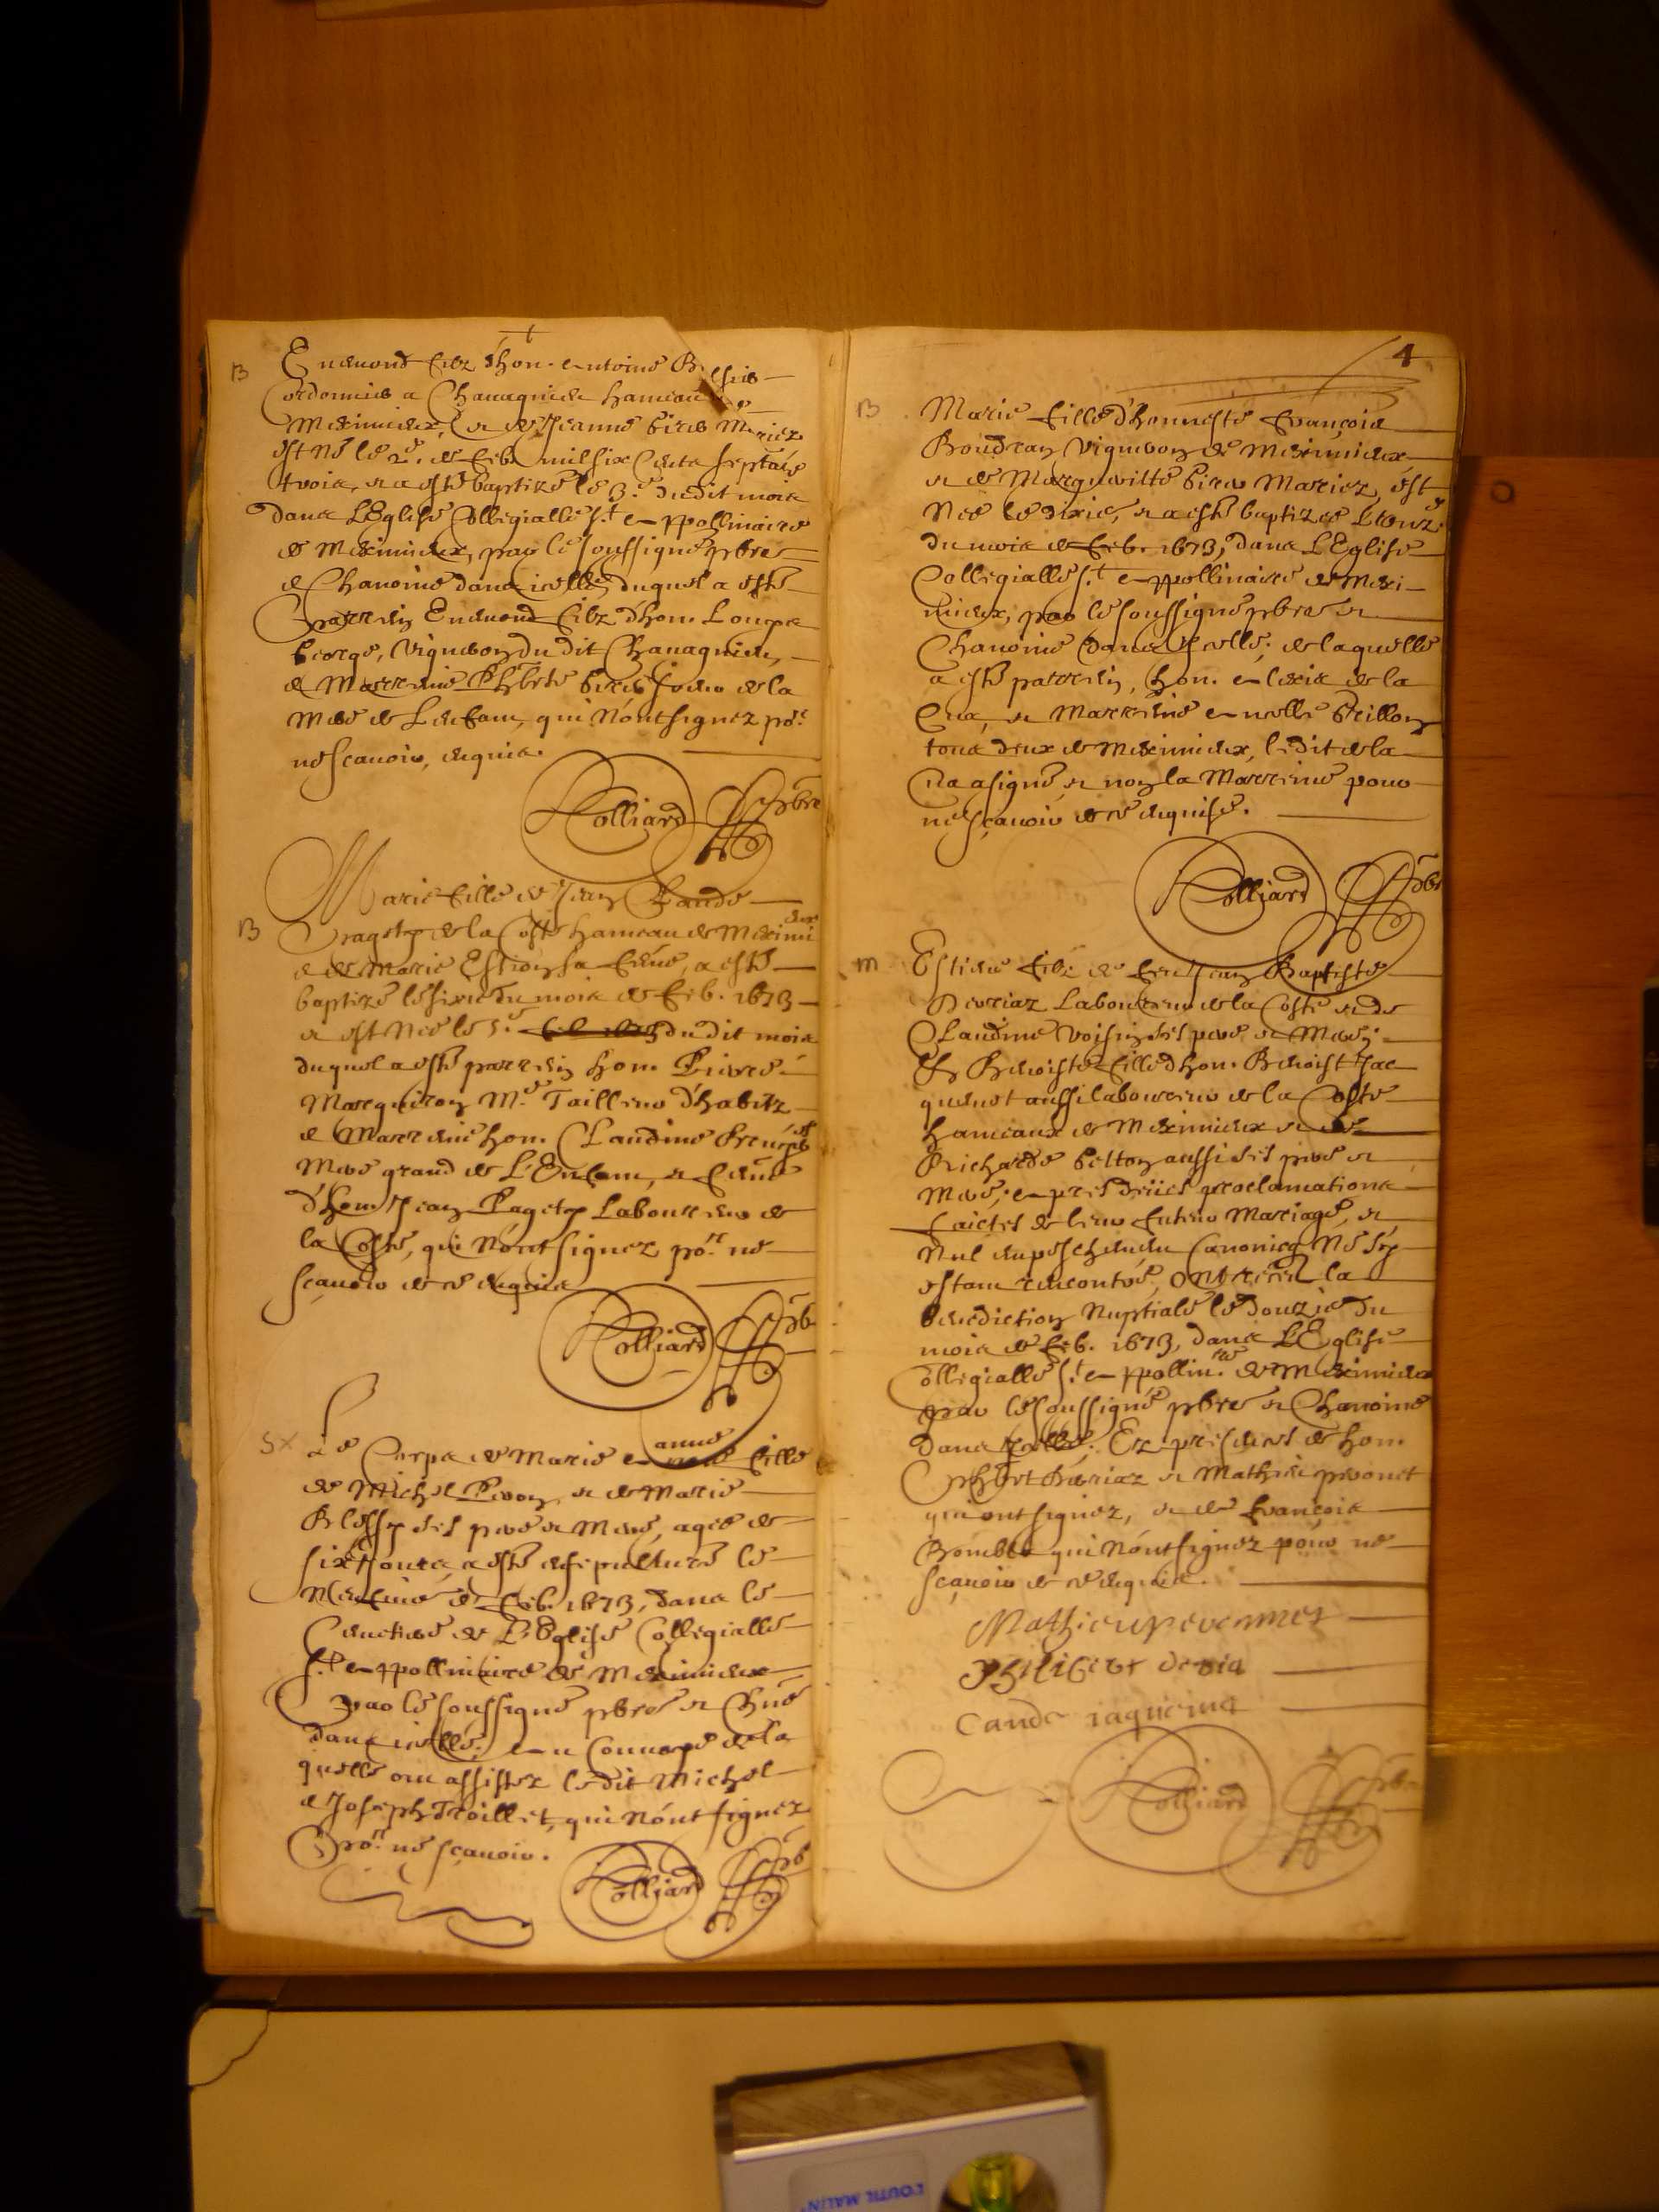 B
Enemond filz d'hon. Antoine
Cordonnier a Chanagnieu hameau
Meximieux, et de Jeanne
est né le 2.e de feb. mil six cents septante
trois, et a esté baptizé le 3.e dudit mois
dans L'Eglise Collegialle s.t Appollinaire
de Meximieux, par le soussigné pbre
et Chanoine dans icelle, duquel a esté
parrein Enemond filz d'hon. Loups
George, Vigneron du dit Chanagnieu,
et Marreine Phberte soeur de la
mere de L'enfant, qui n'ont signez po.r
ne scavoir, enquis.
Rolliard pbre
B
Marie fille de Jean Claude
Pageton de la Coste hameau de Meximieux
et de Marie Estion sa feme, a esté
baptizé le sixie du mois de feb. 1673
et est Née le 5.e du dit mois
duquel a esté parrein hon. Pierre
Marguiron M.e Tailleur d'habitz
et Marreine hon. Claudine
Mere grand de L'Enfant, et feme
d'hon. Jean Pageton Laboureur de
la Coste, qui n'ont signez po.r ne
sçavoir de ce enquis
Rolliard pb
S+
Le Corps de Marie Anne fille
de Michel Pivon et de Marie
ses pere et Mere, agée de
six jours, a esté ensepulturé le
Neufvie de feb. 1673, dans le
Cemetiere de L'Eglise Collegialle
S.t Appollinaire de Meximieux
par le soussigné pbre et Chne
dans icelle; au Convoys de la
quelle ont assistez le dit Michel
et Joseph Troillet, qui n'ont signez
po.r ne sçavoir.
Rolliard pb
4
B
Marie fille d'honneste François
Boudran Vigneron de Meximieux
et de Margueritte Mariez, est
Née le dixie, et a esté baptizée L'onz.e
du mois de feb. 1673, dans L'Eglise
Collegialle s.t Appollinaire de Mexi-
mieux, par le soussigné pbre et
Chanoine dans icelle; de laquelle
a esté parrein, hon. Alexis de la
Cua, et Marreine Anne Brillon
tous deux de Meximieux, ledit de la
Cua a signé et non la Marreine pour
ne sçavoir de ce enquise.
Rolliard pbr
M
Estiene filz de feu Jean Baptiste
Derriaz Laboureur de la Coste et de
Claudine Voisin ses pere et Mere;
Et Benoiste fille d'hon. Benoist Jac
quemet aussi laboureur de la Coste
hameaux de Meximieux et de
Richarde Gelton aussi ses pere et
Mere; Apres deües proclamations
faictes de leur futeur Mariage, et
Nul empeschement Canonicq Ne s'y
estant rencontré, ont receu la
benediction Nuptiale le douzie du
mois de feb. 1673, dans L'Eglise
Collegialle s.t Appollin.re de Meximieux
par le soussigné pbre et Chanoine
dans icelle; Ez presences de hon.
Phbert Derriaz et Mathieu pevonet
qui ont signez, et de François
qui n'ont signez pour ne
sçavoir de ce enquis.
Mathieu pevonnet
Philibert deria
Rolliard pbre